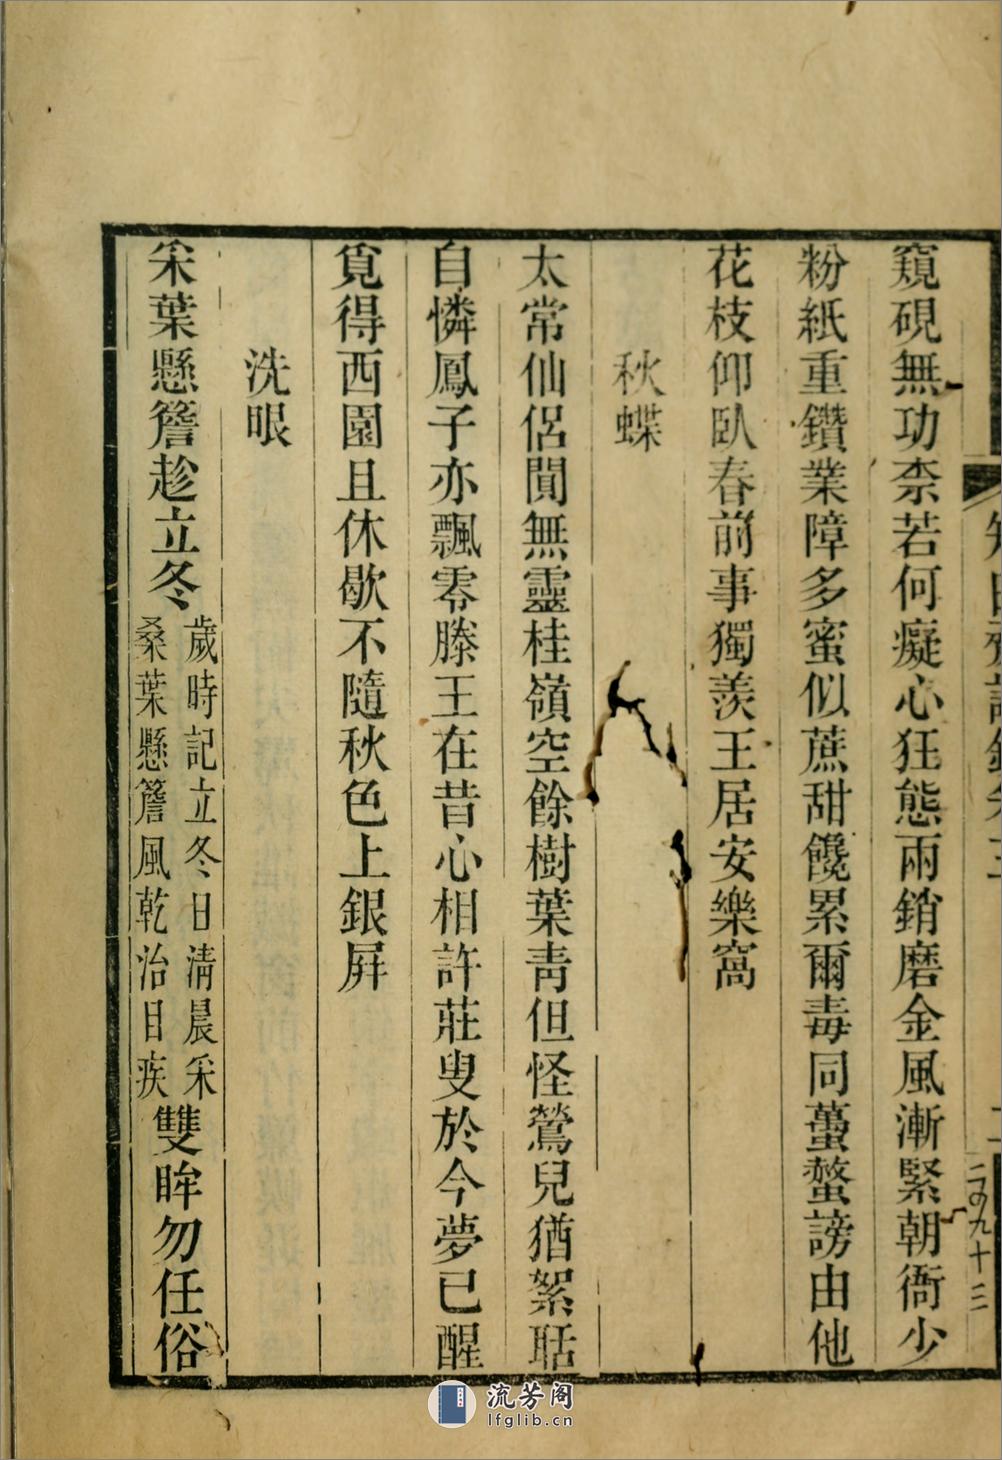 窺硯無功柰若何癡心狂態兩銷磨金風漸緊朝衙少
粉紙重鑽業障多蜜似蔗甜饞累爾毒同蠆螫謗由他
花枝仰臥春前事獨羨王居安樂窩
秋蝶
太常仙侶閴無靈桂嶺空餘樹葉靑但怪鶯兒猶絮聒
自憐鳳子亦飄零滕王在昔心相許莊叟於今夢已醒
覓得西園且休歇不隨秋色上銀屛
洗眼
采葉懸簷趁立冬
歲時記立冬日淸晨采
桑葉懸簷風乾治目疾
雙眸勿任俗
流芳阁
lfglib.cn